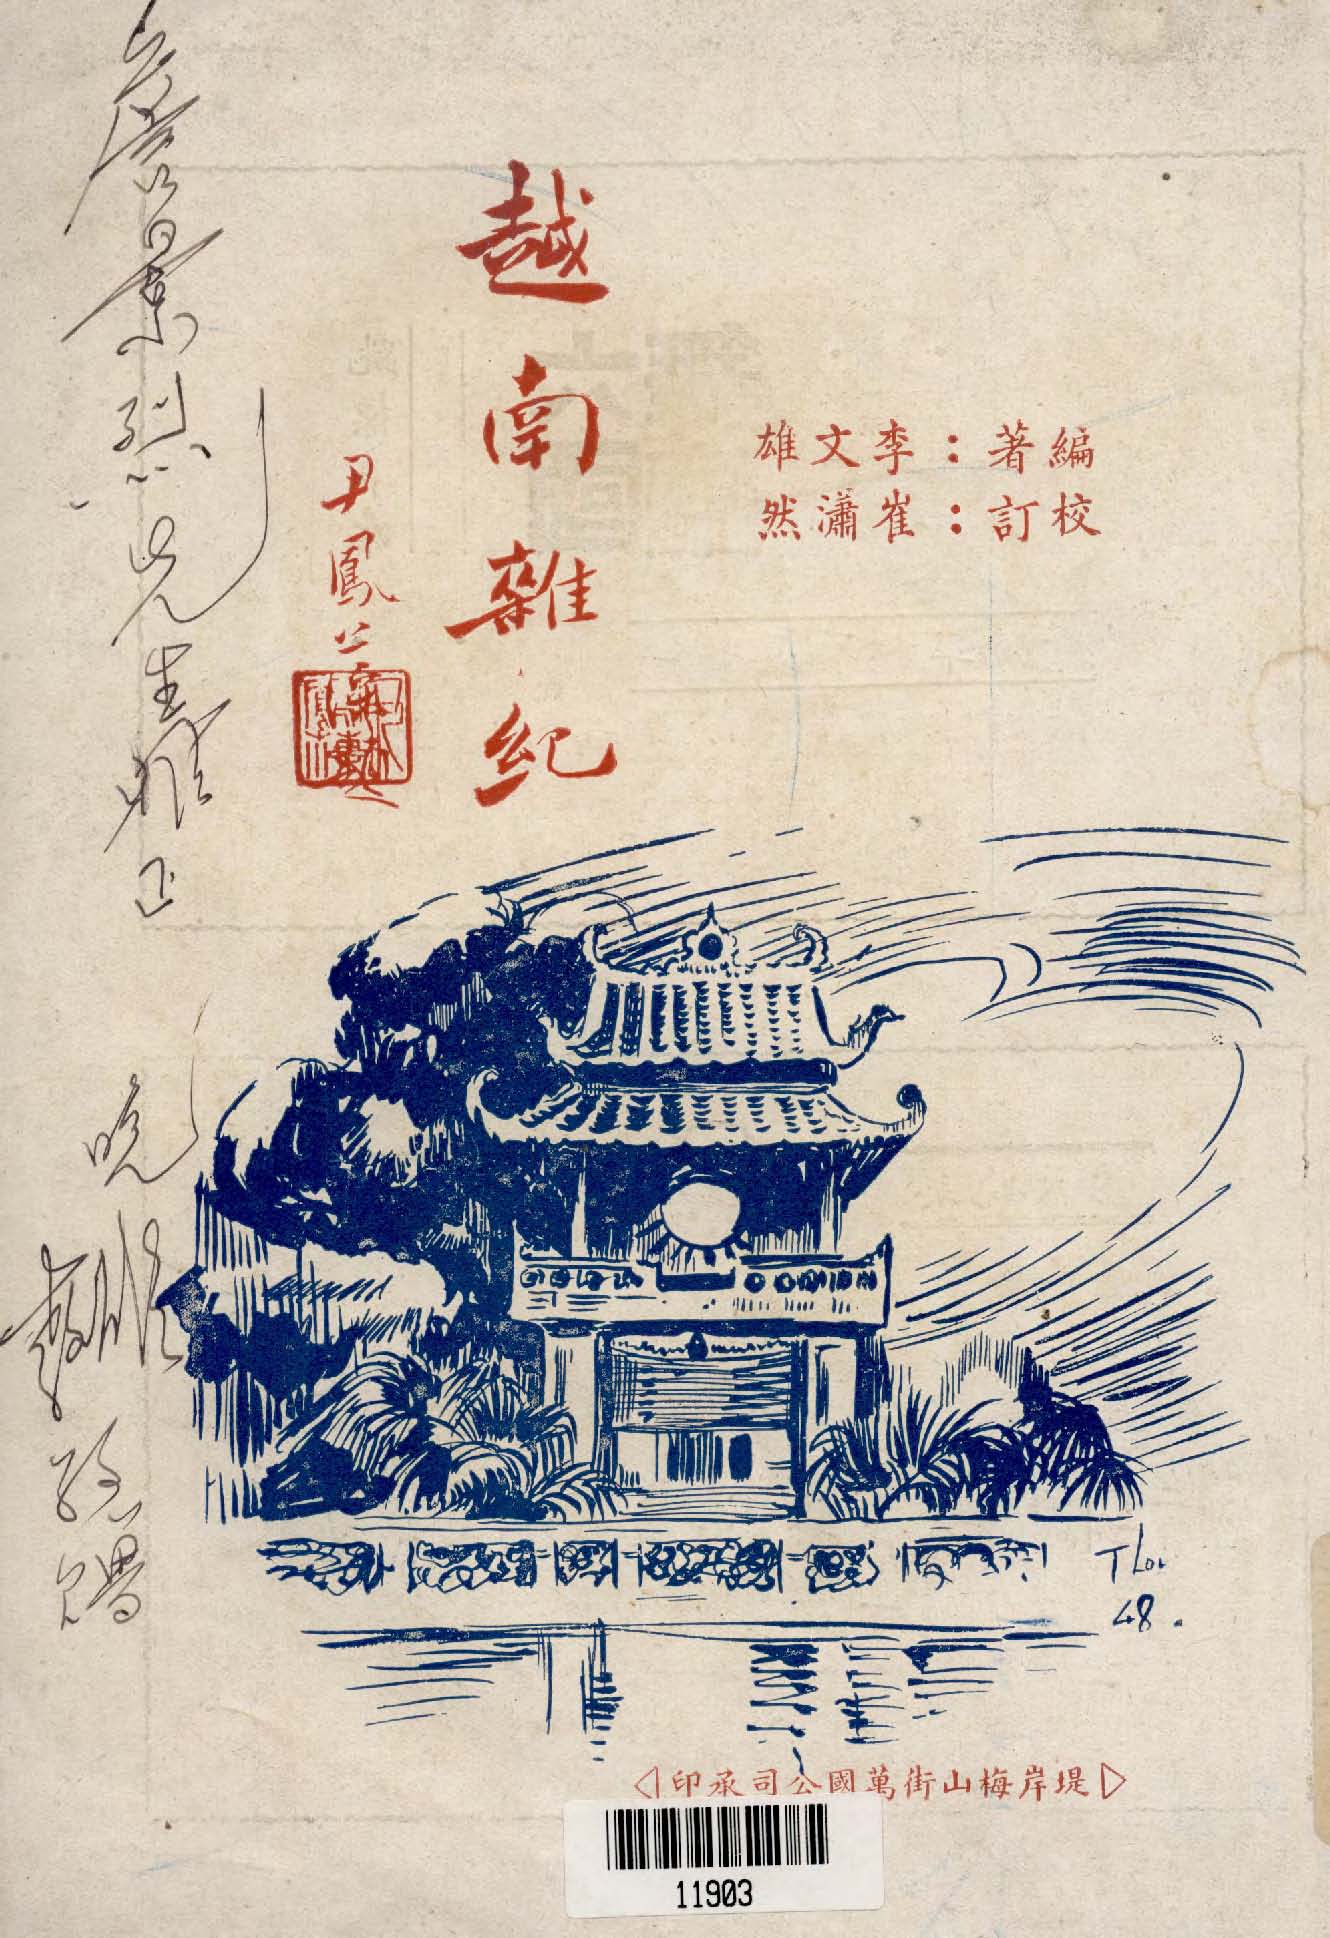 越南雜紀
尹鳳公
編著：李文雄
校訂：崔瀟然
詹景烈先生雅正
晚
敬贈
T Loi
48.
堤岸梅山街萬國公司承印
11903